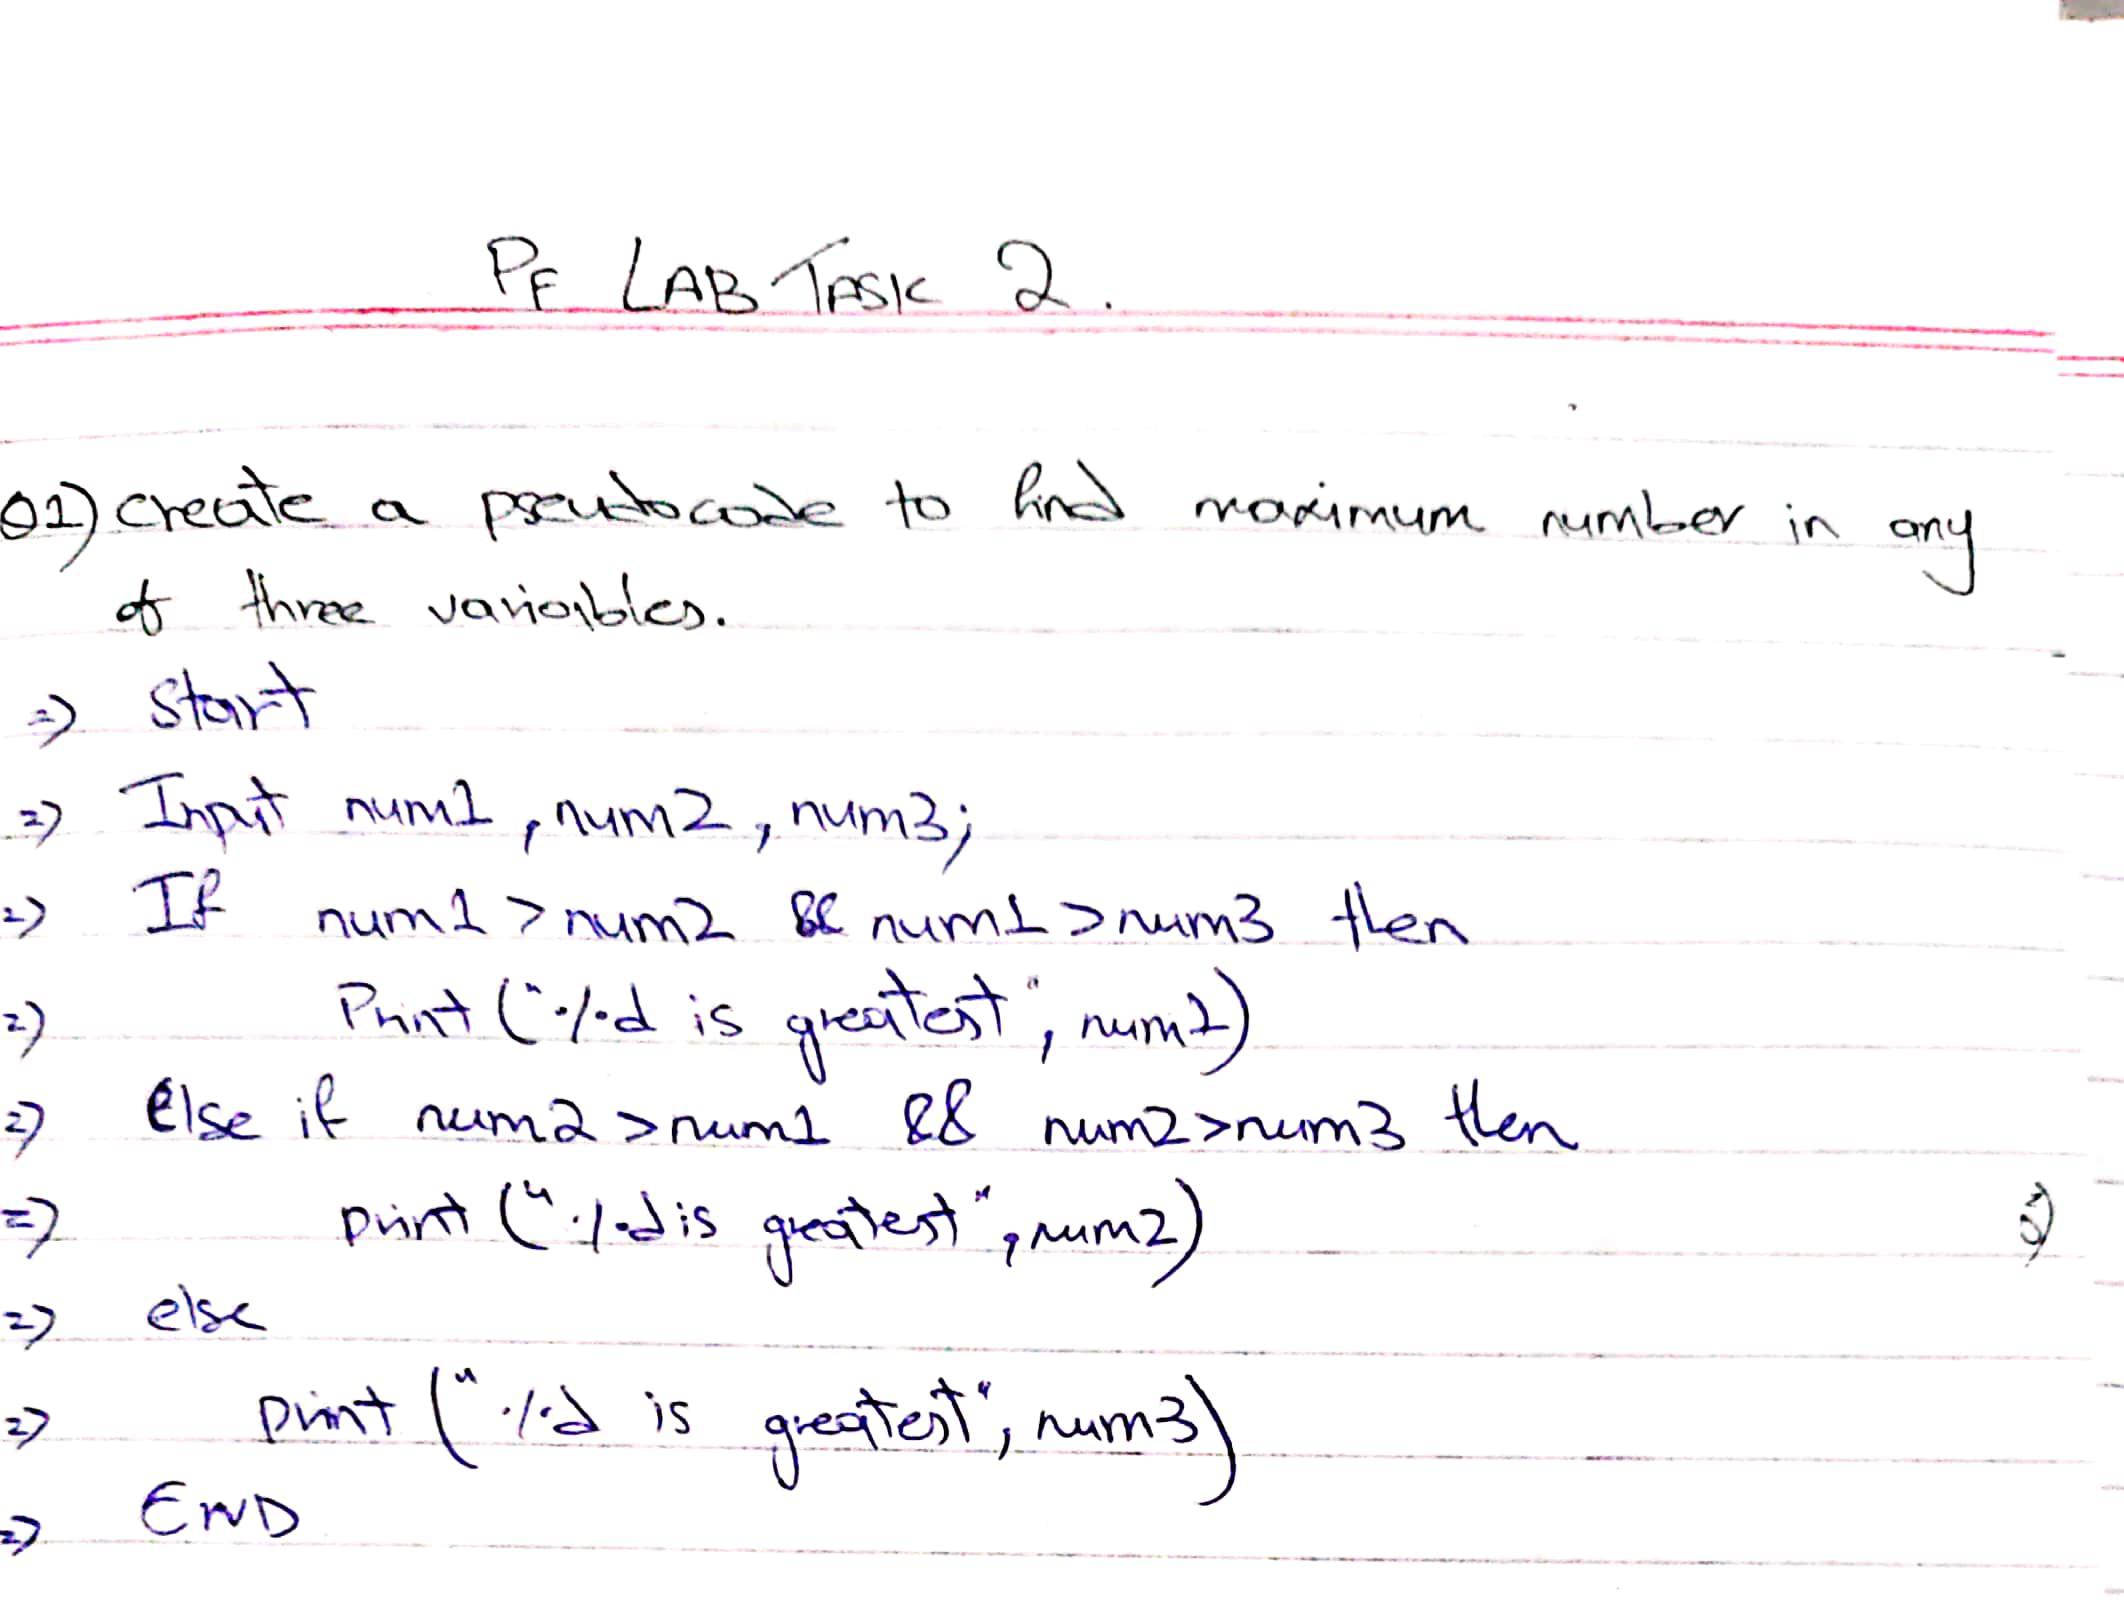 PF LAB TASK 2.
Q1) create a pseudocode to find maximum number in any
of three variables.
=> Start
=> Input num1, num2, num3;
=> If num1 > num2 && num1 > num3 then
=> Print ("%d is greatest", num1)
=> Else if num2 > num1 && num2 > num3 then
=> print ("%d is greatest", num2)
=> else
=> print ("%d is greatest", num3)
=> END